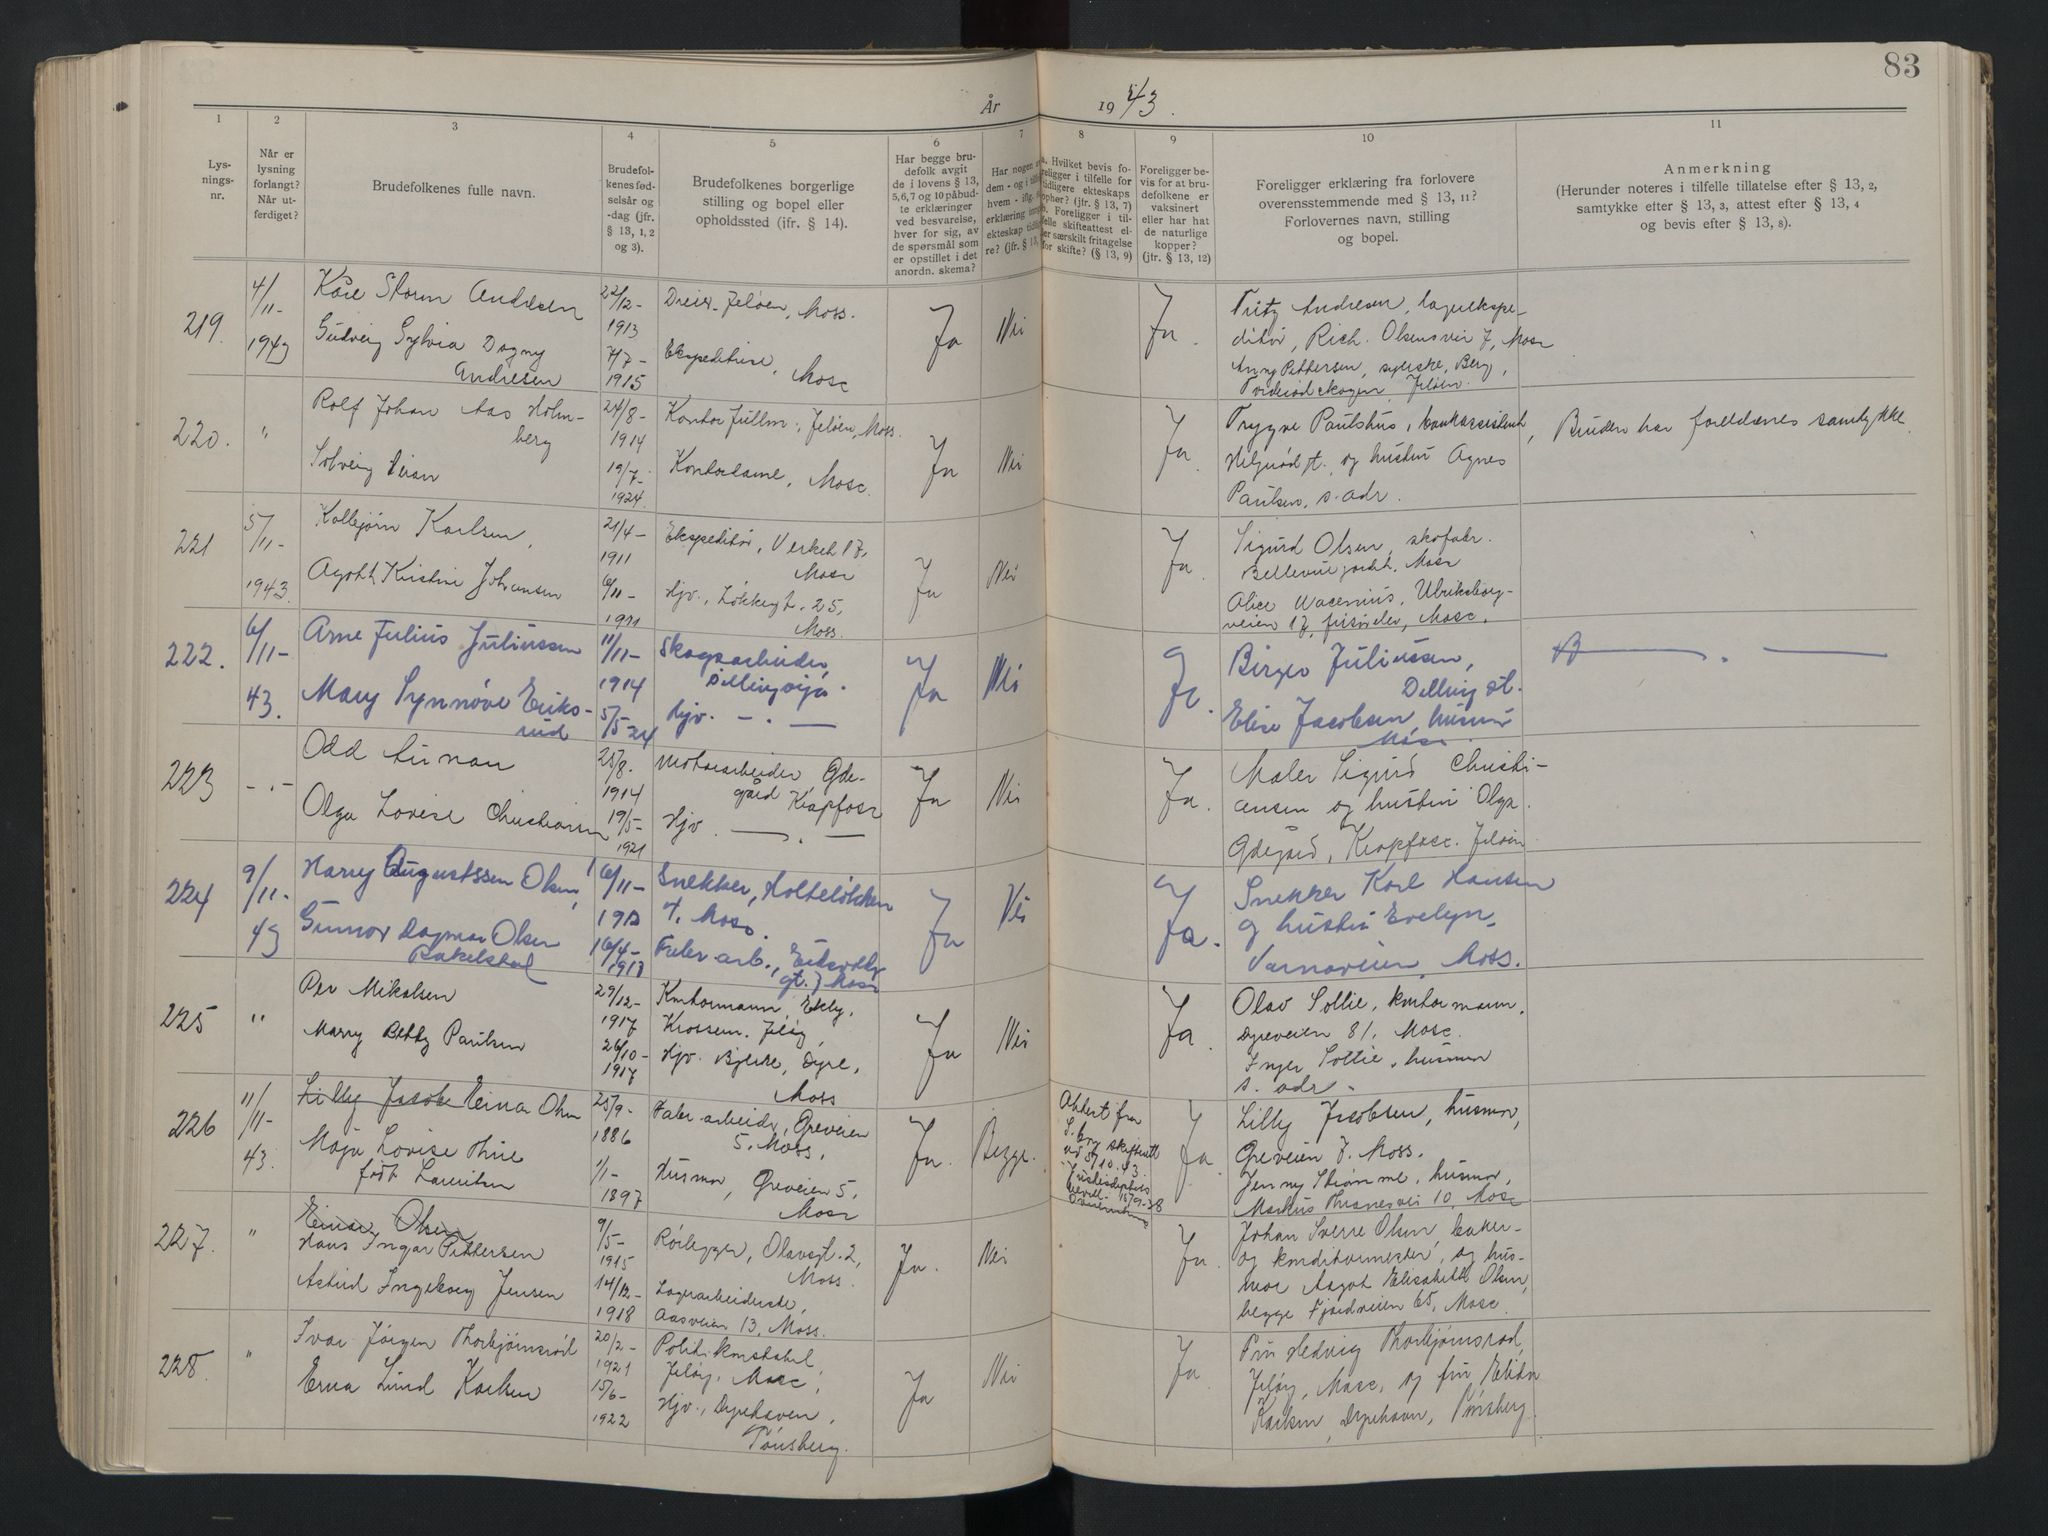 83
År 1943.
1
2
3
4
5
6
7
8
9
10
11
Lys-
nings-
nr.
Når er
lysning
forlangt?
Når ut-
ferdiget?
Brudefolkenes fulle navn.
Brudefol-
kenes fød-
selsår og
-dag (jfr.
§ 13, 1, 2
og 3).
Brudefolkenes borgerlige
stilling og bopel eller
opholdssted (jfr. § 14).
Har begge bru-
defolk avgit
de i lovens § 13,
5,6,7 og 10 påbud-
te erklæringer
ved besvarelse,
hver for sig, av
de spørsmål som
er opstillet i det
anordn. skema?
Har nogen
dem - og i
hvem - ifl.
erklæring
ekteskap
re? (jfr. § 13,
a. Hvilket bevis fo-
religger i tilfelle for
tidligere ekteskaps
ophør? (jfr. § 13, 7)
b. Foreligger i til-
felle skifteattest el-
ler særskilt fritagelse
for skifte? (§ 13, 9)
Foreligger be-
vis for at bru-
defolkene er
vaksinert
eller har hat
de naturlige
kopper?
(jfr. § 13, 12)
Foreligger erklæring fra forlovere
overensstemmende med § 13, 11?
Forlovernes navn, stilling
og bopel.
Anmerkning
(Herunder noteres i tilfelle tillatelse efter § 13, 2,
samtykke efter § 13, 3, attest efter § 13, 4
og bevis efter § 13, 8).
219.
4/11-
1943
Kåre Storm Andresen
Gudveig Sylvia Dagny
Andresen
22/12-
1913
7/7-
1915
Dreier, Jeløen, Moss.
Ekspeditrise,
Moss
Ja
Nei
Ja.
Fritz Andresen, lagerekspe-
ditør, Rich. Olsensvei 7, Moss
Anny Pettersen, syerske, Berg,
Jeløen.
220.
"
Rolf Johan Aas Holm-
berg
Solveig
24/8-
1914
19/7-
1924
Kontorfullm., Jeløen, Moss.
Kontordame, Moss.
Ja
Nei
Ja.
Trygve Paulshus, bankassistent,
Helgerød st. og hustru Agnes
Paulsen, s. adr.
Bruden har foreldrenes samtykke.
221
5/11-
1943.
Kolbjørn Karlsen,
Agoth Kristine Johansen
21/4-
1911
6/11-
1911
Ekspeditør, Verket 17,
Moss
Hjv., Løkkegt. 25,
Moss.
Ja
Nei
Ja.
Sigurd Olsen, skofabr.
Bellevue Moss
Alice Ulriksborg-
veien 17, Moss.
222.
6/11-
43.
Arne Julius Juliussen
Mary Synnøve Eriks-
rud
11/11-
1914
5/5-24
Skogsarbeider,
Dillingøya.
Hjv. - . -
Ja
Nei
Ja.
Birger Juliussen,
Dilling st.
Elise Jacobsen, husmor
Moss.
223
- . -
Odd
Olga Lovise Christiansen
25/8.
1914
19/5-
1921
Motorarbeider Øde-
gård Krapfoss
Hjv. - . -
Ja
Nei
Ja.
Maler Sigurd Christi-
ansen og hustru Olga.
Ødegård, Krapfoss. Jeløen
224
9/11-
43
Harry Augustssen Olsen,
Gunvor Dagmar Olsen
Bakelstad
6/11-
16/4-
Snekker, Holteløkken
7, Moss.
gt. 7 Moss
Ja
Nei
Ja.
Snekker Karl Hansen
og hustru Evelyn,
Varnaveien, Moss.
225
"
Per Mikalsen
Marry Betty Paulsen
29/12-
1917
26/10-
1917
Kontormann, Ekely,
Krossern. Jeløy
Hjv. Bjerke, Dyre,
Moss
Ja
Nei
Ja.
Olav Sollie, kontormann,
Dyreveien 81, Moss.
Inger Sollie, husmor
s. adr.
226
11/11-
43.
Lilly Jacobs Einar Olsen
Maja Lovise Thrue
født Lauritsen
25/9-
1886
1/1-
1897
Fabr. arbeider, Greveien
5, Moss.
Husmor, Greveien 5,
Moss
Ja.
Begge.
Ja
Lilly Jacobsen, husmor,
Greveien 7. Moss.
Jenny Strømme, husmor,
Markus Thranesvei 10, Moss
227.
"
Einar Olsen
Hans Ingar Pettersen
Astrid Ingeborg Jensen
9/5-
1915
14/12-
1918
Rørlegger, Olavsgt. 2,
Moss.
Lagerarbeiderske,
Aasveien 13, Moss.
Ja.
Nei
Ja.
Johan Sverre Olsen, baker-
og konditormester, og hus-
mor Aagot Elisabeth Olsen,
begge Fjordveien 65, Moss.
228.
"
Ivar Jørgen Thorbjørnsrød
Erna Lund Karlsen
20/2-
1921
15/6-
1922
Politikonstabel,
Jeløy, Moss,
Hjv., Dyrehaven,
Tønsberg.
Ja
Nei
Ja.
Fru Hedvig Thorbjørnsrød,
Jeløy, Moss, og fru
Karlsen, Tønsberg.